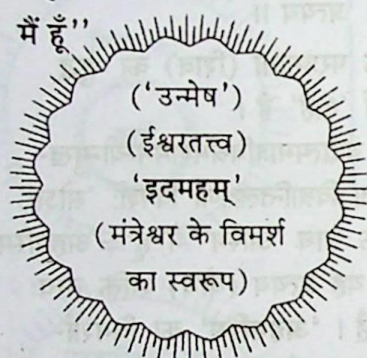 मैं हूँ”
(‘उन्मेष’)
(ईश्वरतत्त्व)
‘इदमहम्’
(मंत्रेश्वर के विमर्श
का स्वरूप)